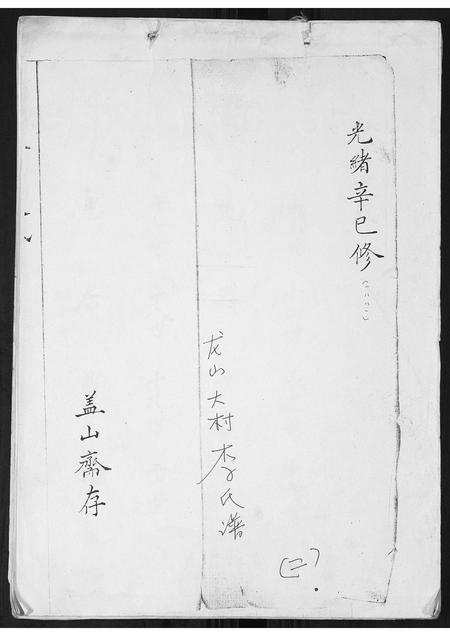 光緒辛巳修
(一八八一)
龙山大村李氏谱
(二)?
盖山齋存